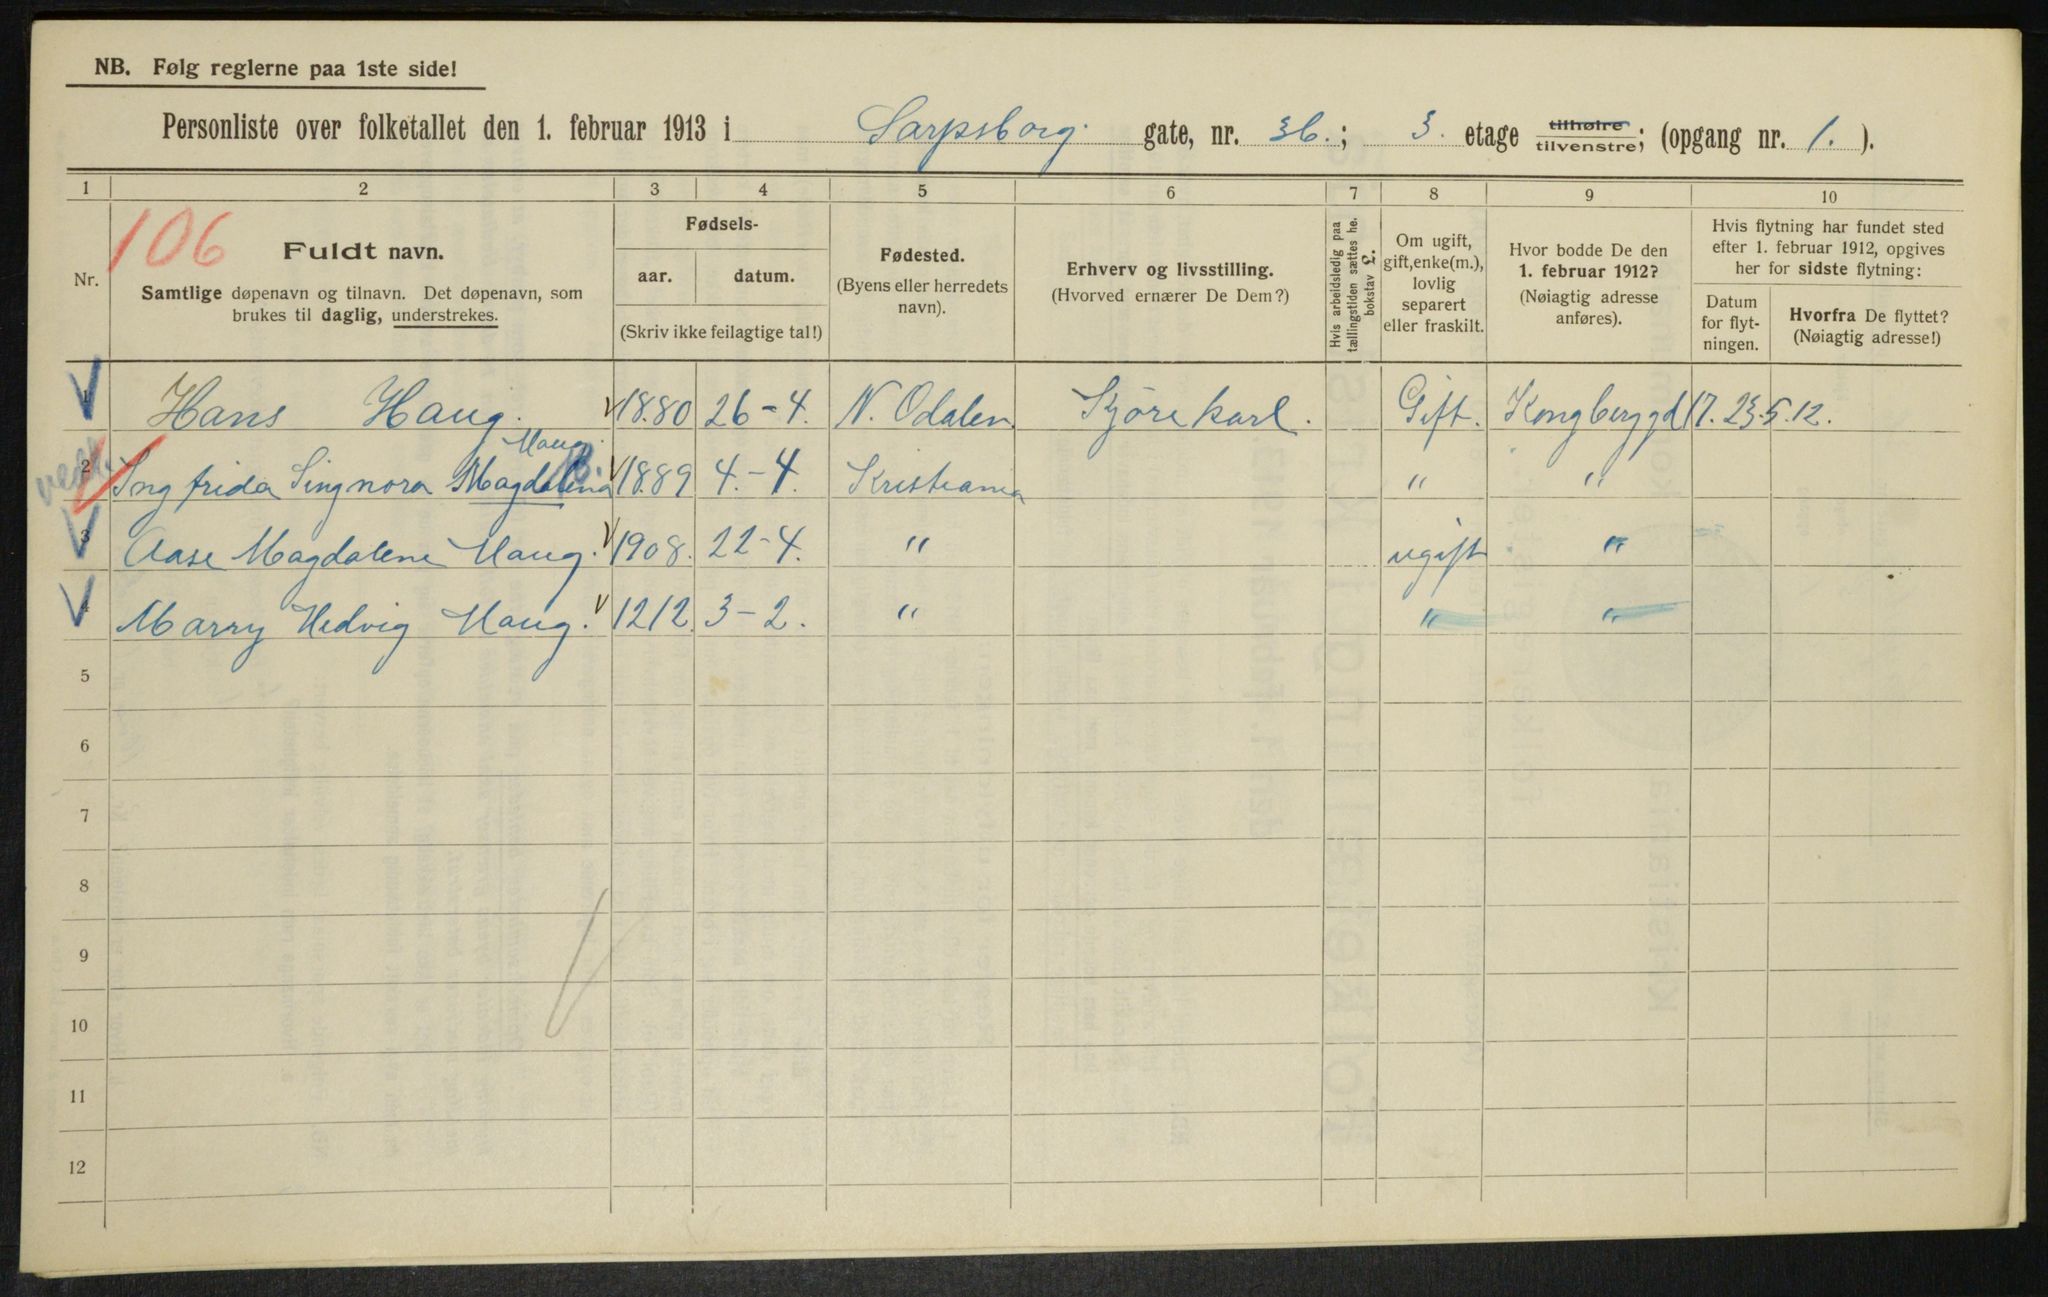 NB. Følg reglerne paa 1ste side!
Personliste over folketallet den 1. februar 1913 i Sarpsborg gate, nr. 36.; 3. etage tilhøire tilvenstre; (opgang nr. 1. ).
1 2 3 4 5 6 7 8 9 10
106
Nr.
Fuldt navn.
Samtlige døpenavn og tilnavn. Det døpenavn, som
brukes til daglig, understrekes.
Fødsels-
aar. datum.
(Skriv ikke feilagtige tal!)
Fødested.
(Byens eller herredets
navn).
Erhverv og livsstilling.
(Hvorved ernærer De Dem?)
Hvis arbeidsledig paa
tællingstiden sættes he.
bokstav L.
Om ugift,
gift, enke(m.),
lovlig
separert
eller fraskilt.
Hvor bodde De den
1. februar 1912?
(Nøiagtig adresse
anføres).
Hvis flytning har fundet sted
efter 1. februar 1912, opgives
her for sidste flytning:
Datum
for flyt-
ningen.
Hvorfra De flyttet?
(Nøiagtig adresse!)
1 Hans Haug. 1880 26-4. N. Odalen Kjörekarl. Gift. Kongberggd 17. 23.5.12.
Haug.
2 Ingfrida Singnora Magdalena 1889 4.-4. Kristiania " "
3 Aase Magdalene Haug. 1908. 22-4. " ugift "
4 Marry Hedvig Haug. 1212. 3-2. " " "
5
6
7
8
9
10
11
12